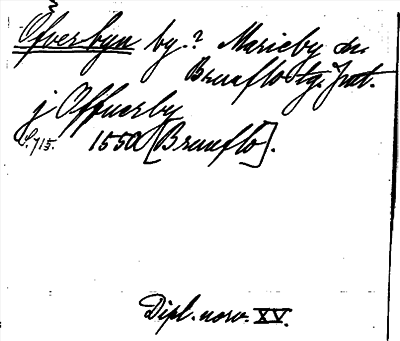 Öfverbyn by? Marieby sn.
Brunflo tg. Jmt.
j Offuerby
S. 715. 1550 [Brunflo].
Dipl. norv. XV.